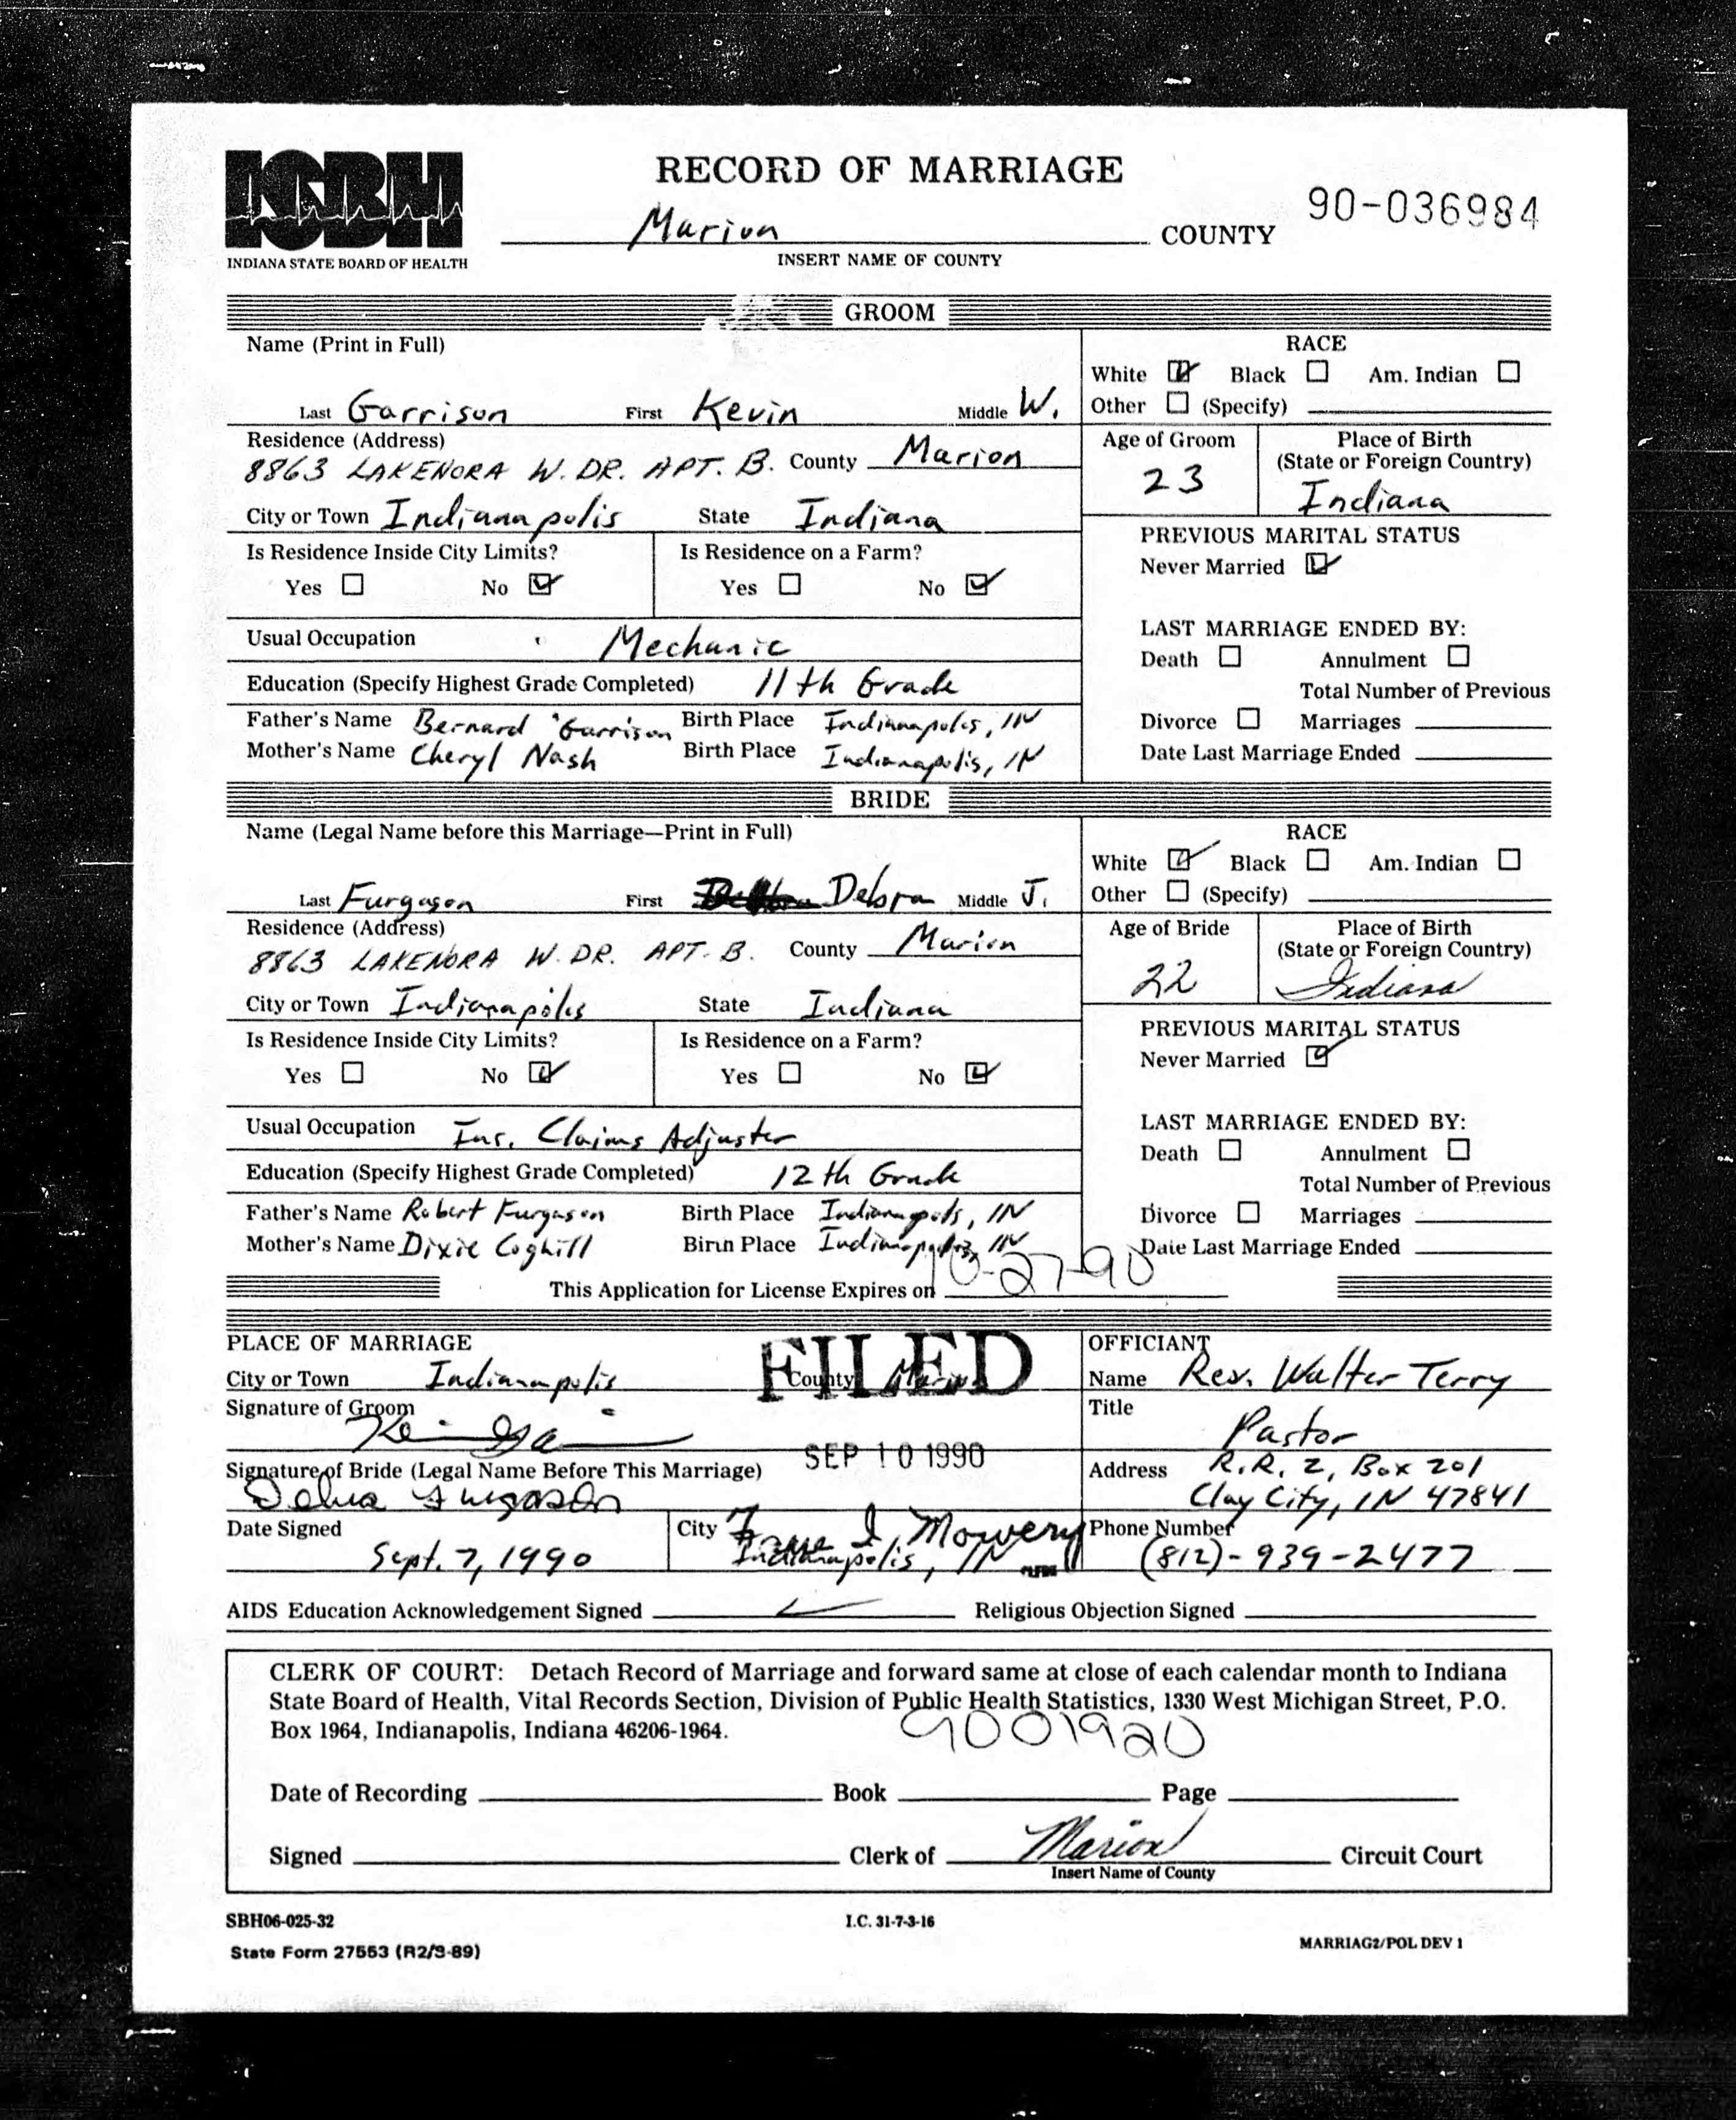 ISBH
INDIANA STATE BOARD OF HEALTH
RECORD OF MARRIAGE
90-036984
Marion COUNTY
INSERT NAME OF COUNTY
GROOM
Name (Print in Full)
Last Garrison First Kevin Middle W.
RACE
White ☑ Black ☐ Am. Indian ☐
Other ☐ (Specify)
Residence (Address)
8863 LAKENORA W. DR. APT. B. County Marion
City or Town Indianapolis State Indiana
Age of Groom
23
Place of Birth
(State or Foreign Country)
Indiana
Is Residence Inside City Limits?
Yes ☐ No ☑
Is Residence on a Farm?
Yes ☐ No ☑
PREVIOUS MARITAL STATUS
Never Married ☑
Usual Occupation Mechanic
Education (Specify Highest Grade Completed) 11th Grade
Father's Name Bernard Garrison Birth Place Indianapolis, IN
Mother's Name Cheryl Nash Birth Place Indianapolis, IN
LAST MARRIAGE ENDED BY:
Death ☐ Annulment ☐
Total Number of Previous
Divorce ☐ Marriages
Date Last Marriage Ended
BRIDE
Name (Legal Name before this Marriage—Print in Full)
Last Furgason First Debra Middle J.
RACE
White ☑ Black ☐ Am. Indian ☐
Other ☐ (Specify)
Residence (Address)
8863 LAKENORA W. DR. APT. B. County Marion
City or Town Indianapolis State Indiana
Age of Bride
22
Place of Birth
(State or Foreign Country)
Indiana
Is Residence Inside City Limits?
Yes ☐ No ☑
Is Residence on a Farm?
Yes ☐ No ☑
PREVIOUS MARITAL STATUS
Never Married ☑
Usual Occupation Ins. Claims Adjuster
Education (Specify Highest Grade Completed) 12th Grade
Father's Name Robert Furgason Birth Place Indianapolis, IN
Mother's Name Dixie Coghill Birth Place Indianapolis, IN
LAST MARRIAGE ENDED BY:
Death ☐ Annulment ☐
Total Number of Previous
Divorce ☐ Marriages
Date Last Marriage Ended
This Application for License Expires on 10-27-90
PLACE OF MARRIAGE
City or Town Indianapolis County Marion
FILED
SEP 10 1990
Signature of Groom
Signature of Bride (Legal Name Before This Marriage)
Debra Furgason
Date Signed
Sept. 7, 1990
City Indianapolis, IN
Faye I. Mowery
CLERK
OFFICIANT
Name Rev. Walter Terry
Title
Pastor
Address R.R. 2, Box 201
Clay City, IN 47841
Phone Number
(812)-939-2477
AIDS Education Acknowledgement Signed ✓ Religious Objection Signed
CLERK OF COURT: Detach Record of Marriage and forward same at close of each calendar month to Indiana
State Board of Health, Vital Records Section, Division of Public Health Statistics, 1330 West Michigan Street, P.O.
Box 1964, Indianapolis, Indiana 46206-1964.
9001920
Date of Recording Book Page
Signed Clerk of Marion Circuit Court
Insert Name of County
SBH06-025-32
State Form 27553 (R2/3-89)
I.C. 31-7-3-16
MARRIAG2/POL DEV 1